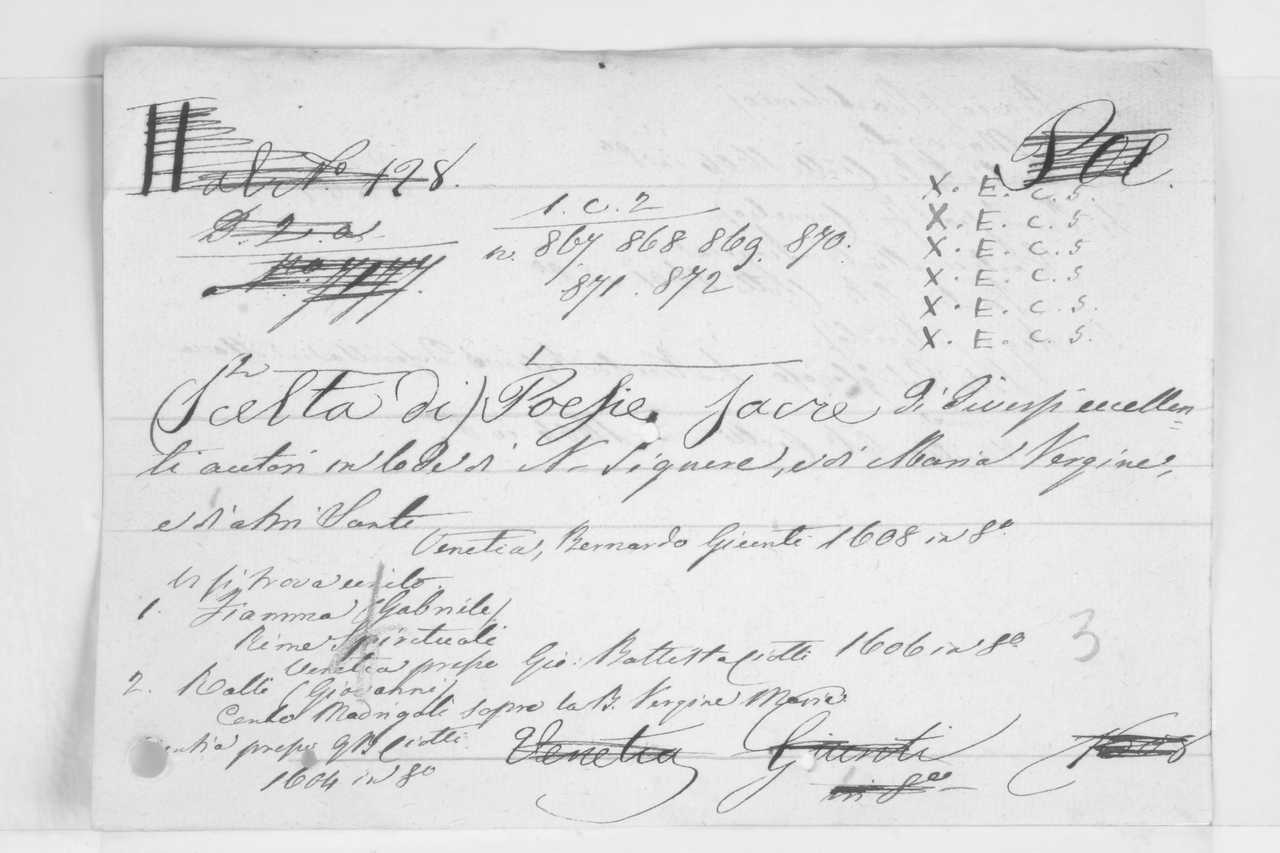 Poe.
1. C. 2
n. 867 868 869. 870.
871. 872
X. E. C. 5.
X. E. C. 5
X. E. C. 5
X. E. C. 5
X. E. C. 5.
X. E. C. 5.
2 1
(Scelta di) Poesie. sacre di diversi eccellen=
ti autori in lode di N. Signore, e di Maria Vergine,
e di altri Santi
Venetia, Bernardo Giunti 1608 in 8º
vi si trova unito.
1. Fiamma (Gabriele)
Rime Spirituali
Venetia presso Gio: Battista Ciotti 1606 in 8º
3
2. Ralli (Giovanni)
Cento Madrigali sopra la B. Vergine Maria
Venetia presso GB Ciotti
1604 in 8º
Venetia Giunti
in 8º